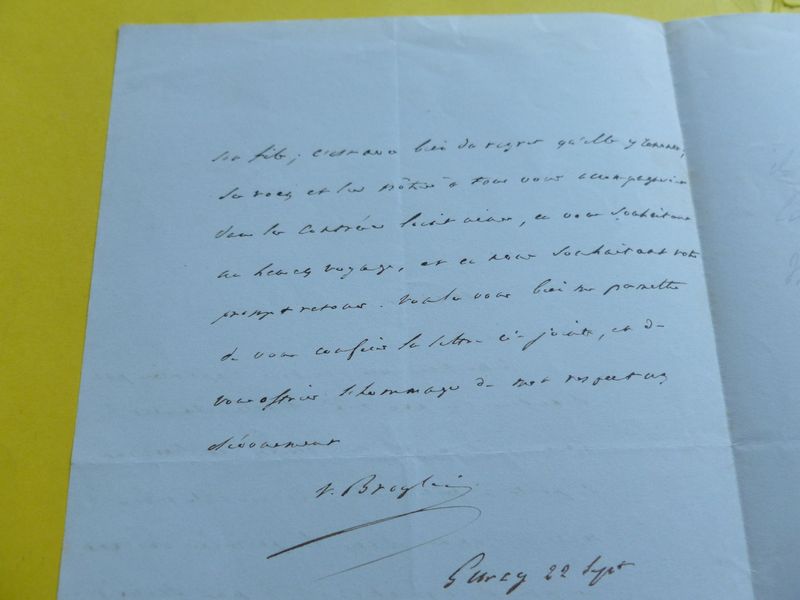 son fils ; c'est avec bien du regret qu'elle y renonce,
ses vœux et les nôtres à tous vous accompagneront
dans les contrées lointaines, en vous souhaitant
un heureux voyage, et en nous souhaitant votre
prompt retour. Voulez vous bien me permettre
de vous confier la lettre ci-jointe, et de
vous offrir l'hommage de mon respectueux
dévouement
V. Broglie
Gurcy 22 Sept